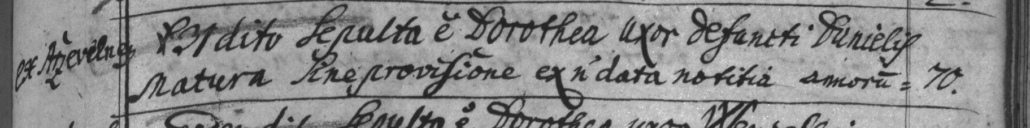 ex
31 dito Sepulta ẽ Dorothea uxor defuncti Danielis
Matura sine provisione ex n̄ data notitia annorũ = 70.
dito Sepulta ẽ Dorothea uxor